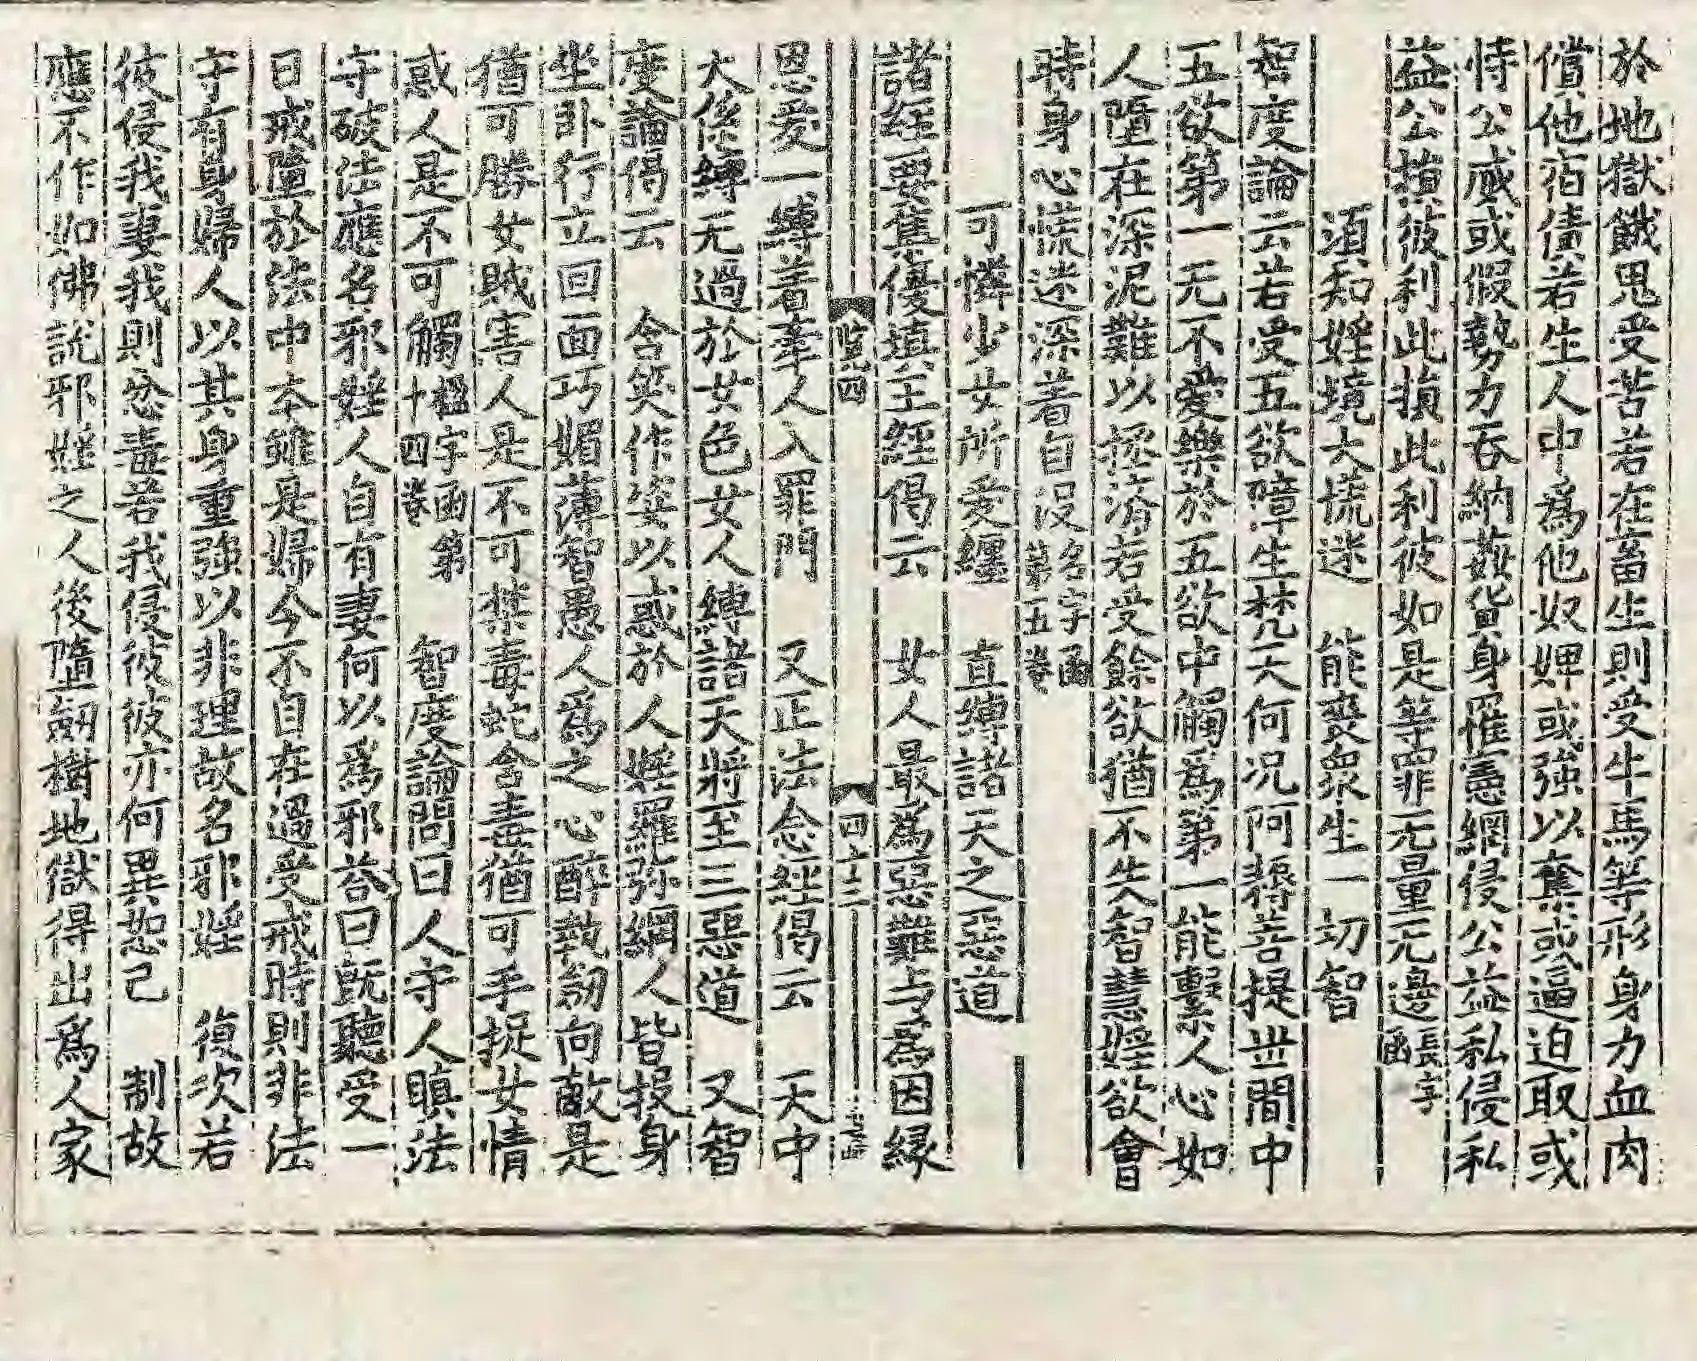 於地獄餓鬼受苦若在畜生則受牛馬等形身力血肉
償他宿債若生人中爲他奴婢或強以奪或逼迫取或
恃公威或假勢力吞納姦貨身罹憲網侵公益私侵私
益公損彼利此損此利彼如是等罪无量无邊長字函
須知婬境大慌迷　能喪衆生一切智
智度論云若受五欲障生梵天何况阿耨菩提世間中
五欲第一无不愛樂於五欲中觸爲第一能繫人心如
人墮在深泥難以拯濟若受餘欲猶不失智慧婬欲會
時身心慌迷深着自没名字函第五卷
可憐少女所愛纏　直縛諸天之惡道
諸經要集優塡王經偈云　女人最爲惡難与爲因緣
四十三
恩愛一縛着牽人入罪門　又正法念經偈云　天中
大係縛无過於女色女人縛諸天將至三惡道　又智
度論偈云　含笑作姿以惑於人婬羅弥網人皆投身
坐卧行立回面巧媚薄智愚人爲之心醉執劒向敵是
猶可勝女賊害人是不可禁毒蛇含毒猶可手捉女情
惑人是不可觸楹字函第十四卷　智度論問曰人守人瞋法
守破法應名邪婬人自有妻何以爲邪荅曰旣聽受一
日戒墮於法中本雖是婦今不自在過受戒時則非法
守有身婦人以其身重強以非理故名邪婬　復次若
彼侵我妻我則忿毒若我侵彼彼亦何異恕己　制故
應不作如佛說邪婬之人後墮劒樹地獄得出爲人家